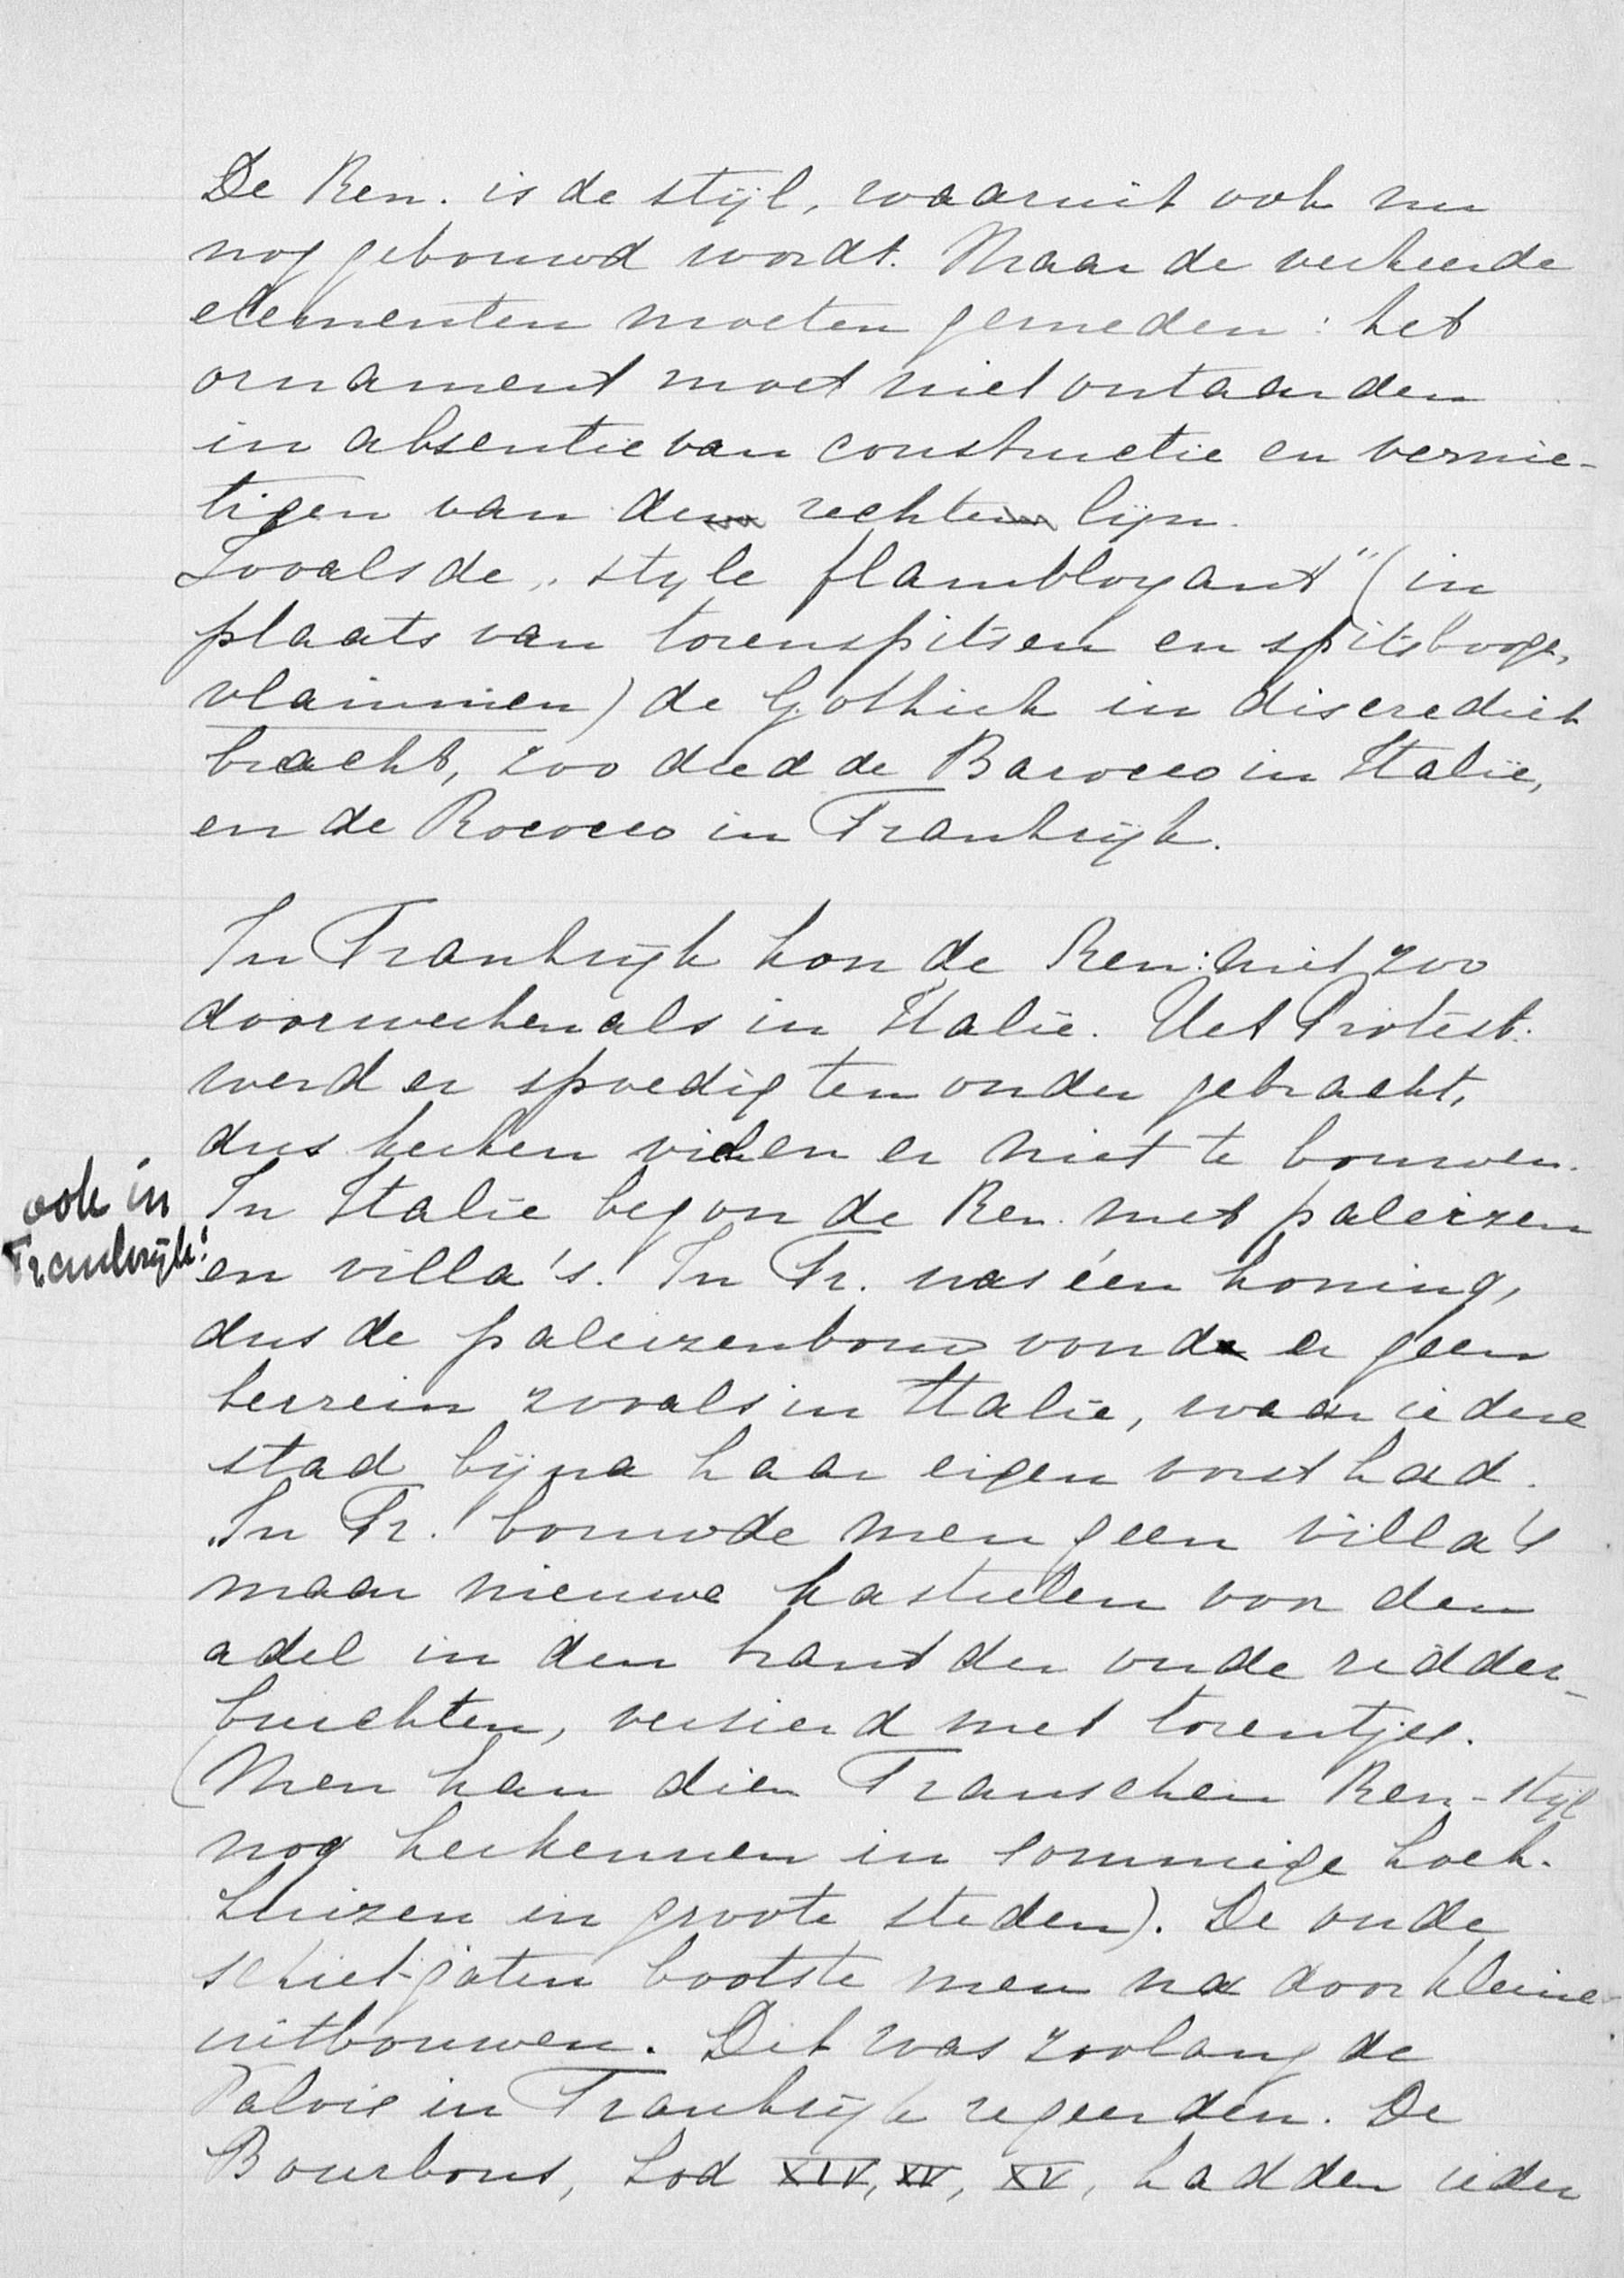 De Ren. is de stijl, waaruit ook nu
nog gebouwd wordt. Maar de verkeerde
elementen moeten gemeden: het
ornament moet niet ontaarden
in absentie van constructie en vernie-
tigen van de rechte lijn.
Zooals de „style flambloyant" (in
plaats van torenspitsen en spitsboog,
vlammen) de Gothiek in discrediet
bracht, zoo deed de Barocco in Italië,
en de Rococco in Frankrijk.
In Frankrijk kon de Ren: niet zoo
doorwerken als in Italië. Het Protest:
werd er spoedig ten onder gebracht,
dus kerken vielen er niet te bouwen.
ook in
Frankrijk!
In Italië begon de Ren. met paleizen
en villa's. In Fr. was éen koning,
dus de paleizenbouw vond er geen
terrein zooals in Italië, waar iedere
stad bijna haar eigen vorst had.
In Fr. bouwde men geen villa's
maar nieuwe kasteelen voor den
adel in den trant der oude ridder-
burchten, versierd met torentjes.
(Men kan dien Franschen Ren-stijl
nog herkennen in sommige hoek-
huizen in groote steden). De oude
schiet-gaten bootste men na door kleine
uitbouwen. Dit was zoolang de
Valois in Frankrijk regeerden. De
Bourbons, Lod XIV, XV, XV, hadden ieder